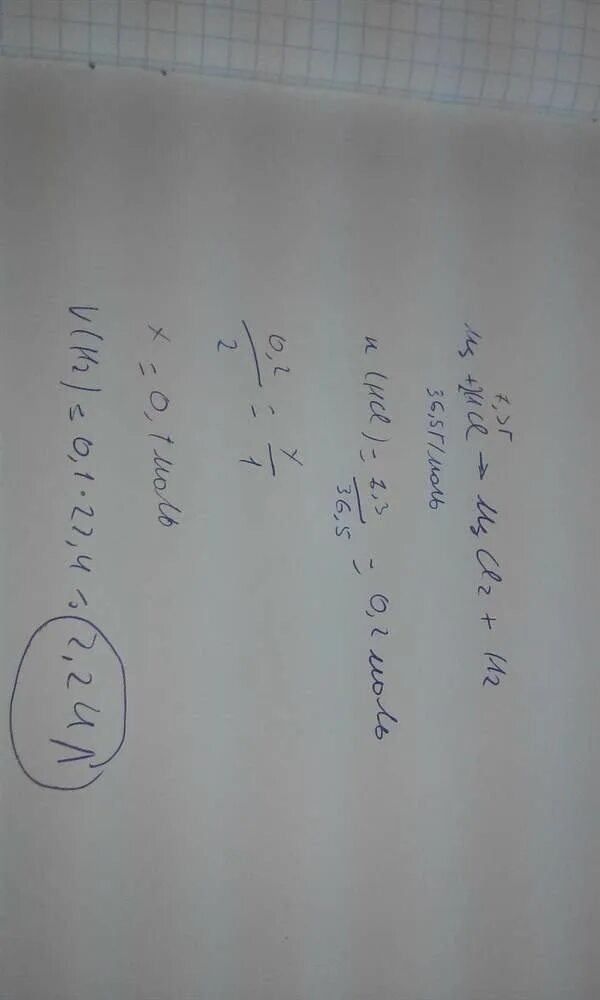 7,3г
Mg + 2HCl → MgCl2 + H2
36,5г/моль
n(HCl) = 7,3/36,5 = 0,2 моль
0,2/2 = x/1
x = 0,1 моль
V(H2) = 0,1 · 22,4 = 2,24л